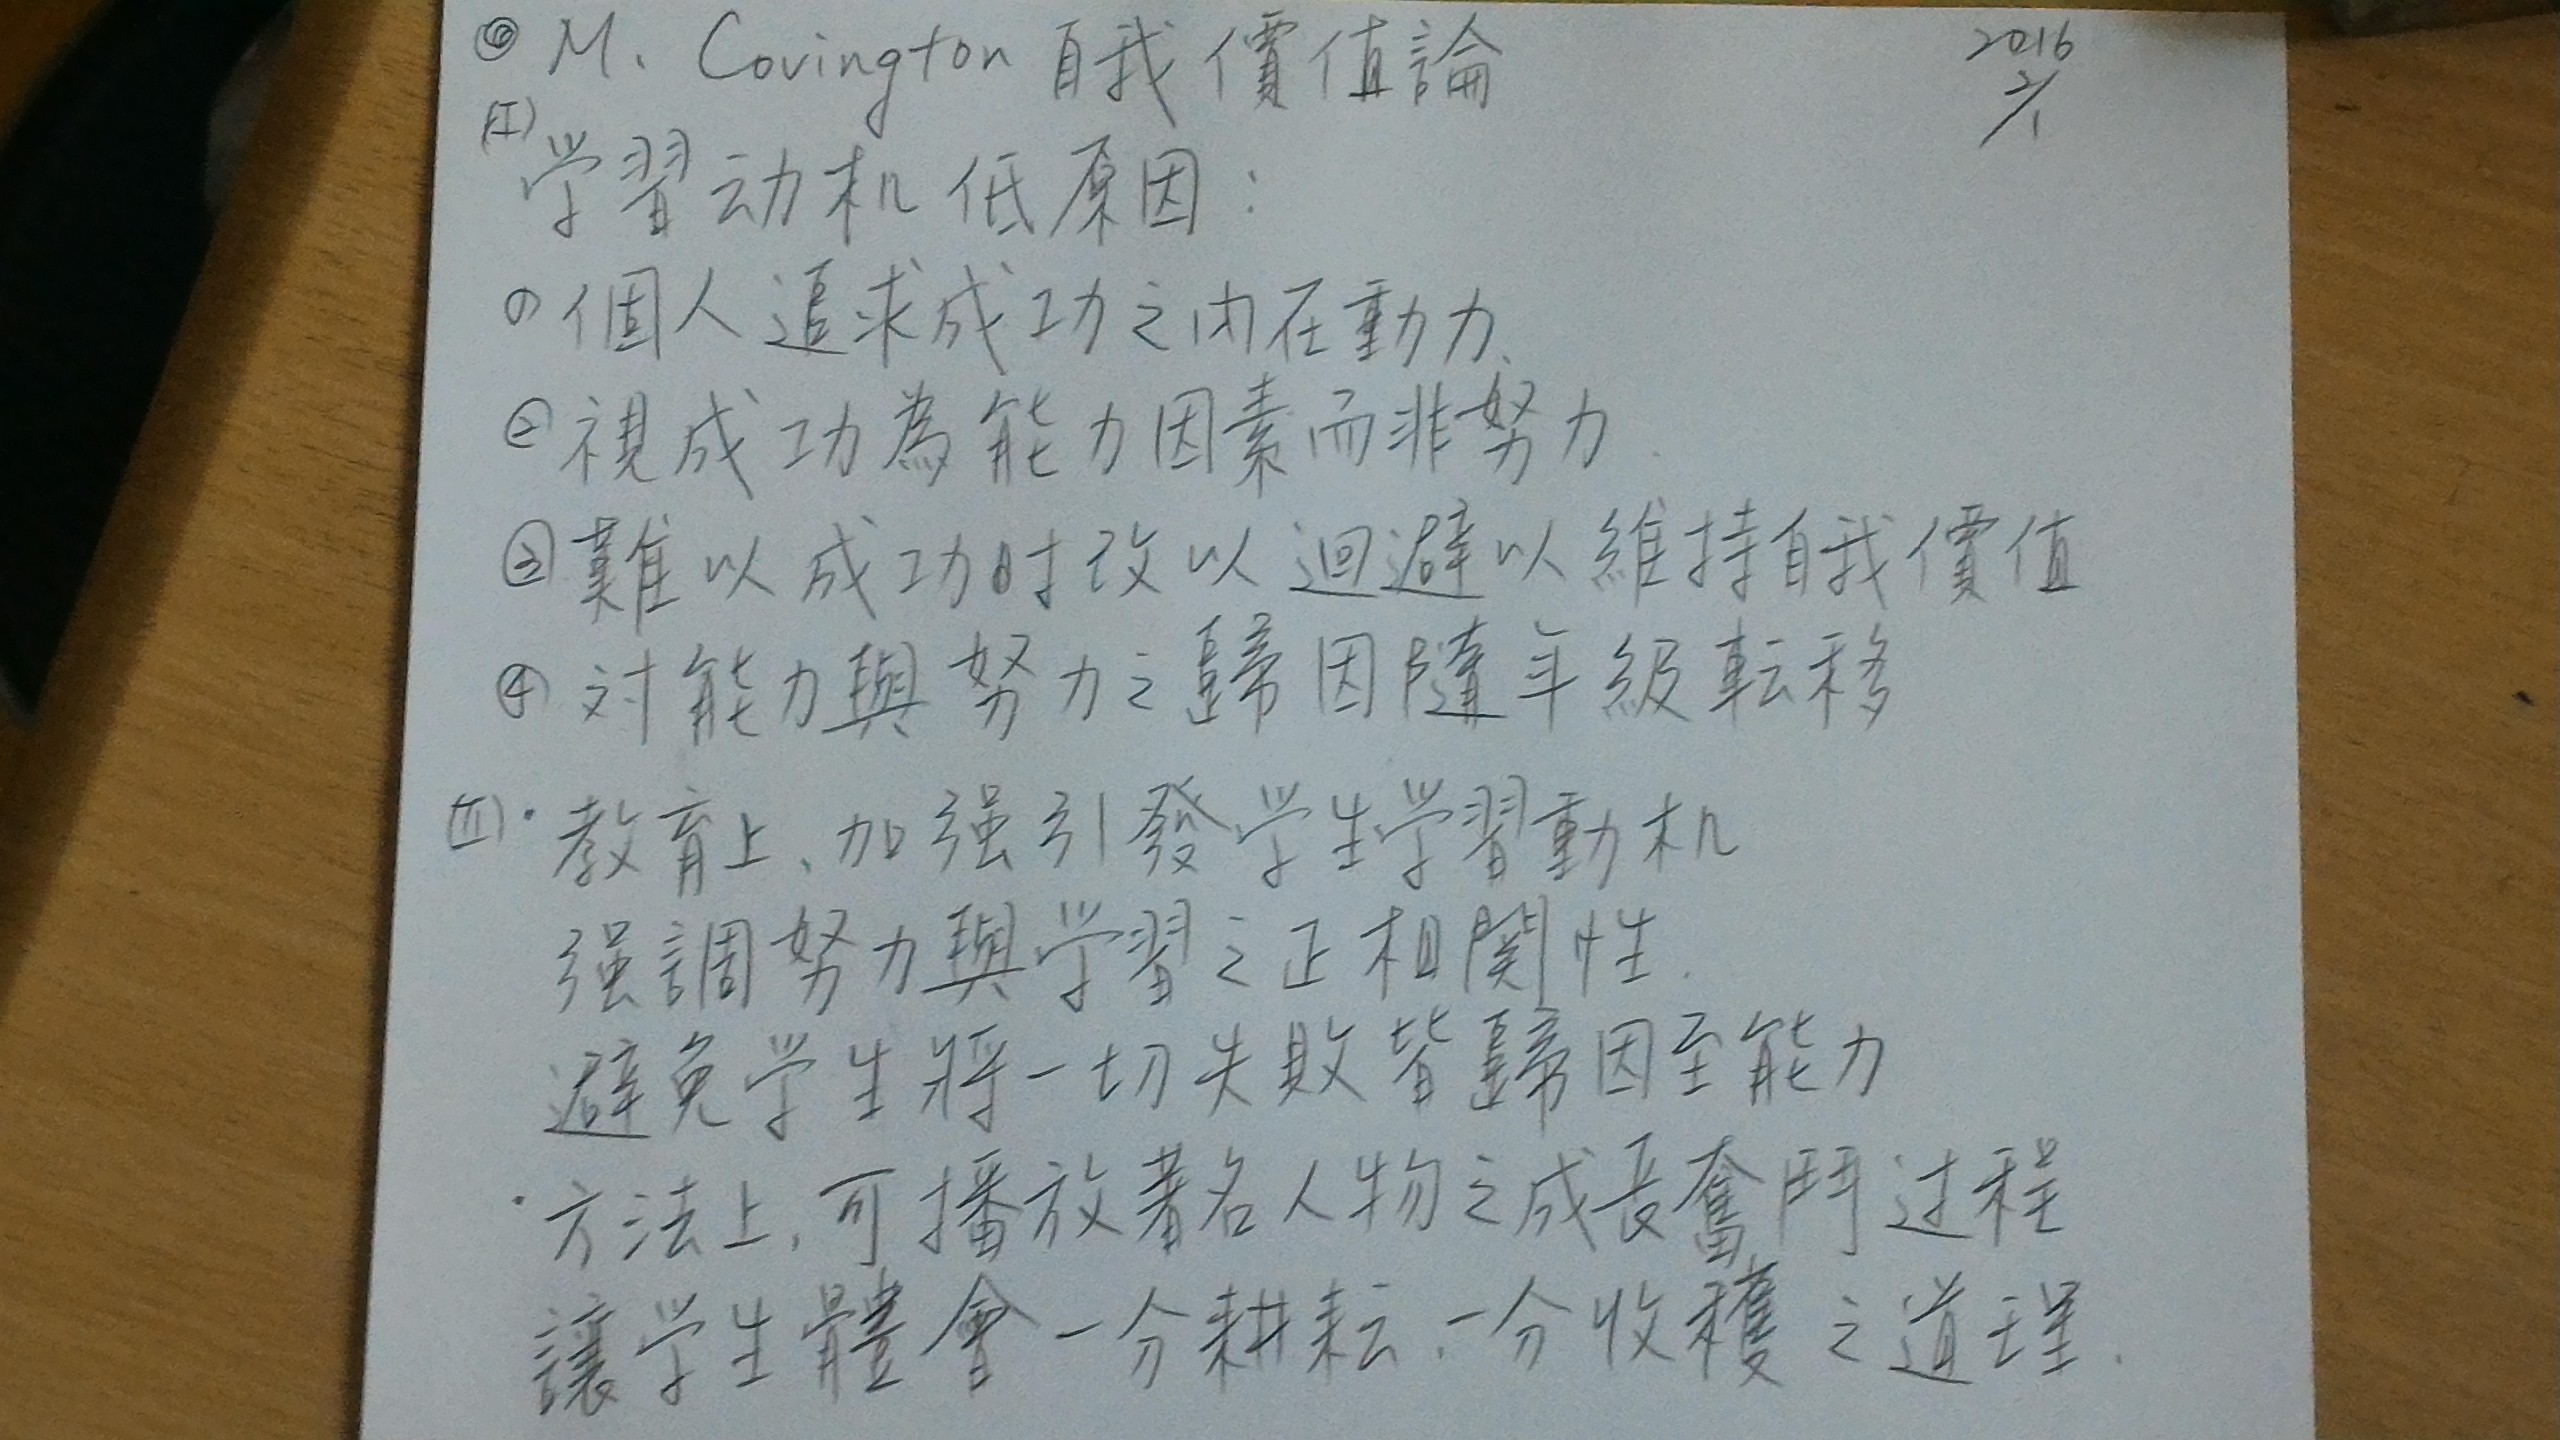 ◎ M. Covington 自我價值論
2016
2/1
(I)
学習动机低原因：
① 個人追求成功之内在動力、
② 視成功為能力因素而非努力.
③ 難以成功时改以迴避以維持自我價值
④ 対能力與努力之歸因隨年級転移
(II)・教育上、加强引發学生学習動机
强調努力與学習之正相関性.
避免学生將一切失敗皆歸因至能力
・方法上,可播放著名人物之成長奮鬥过程
讓学生體會一分耕耘.一分收穫之道理.